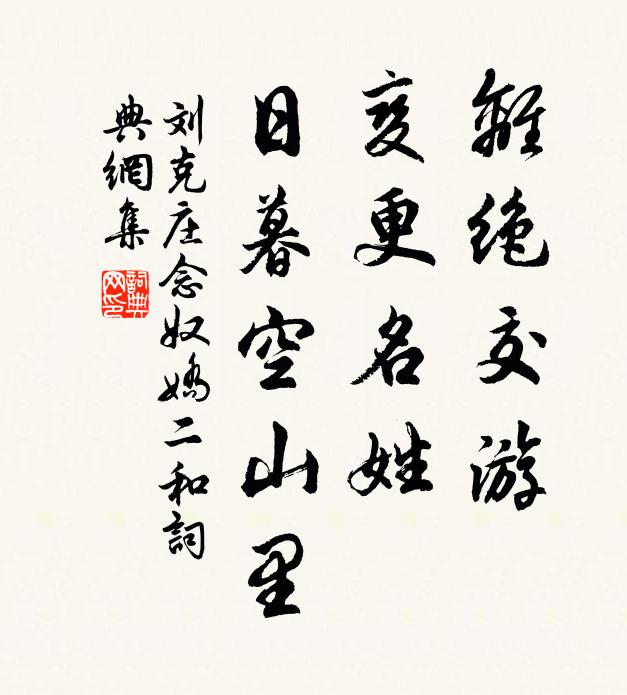 離絶交游
变更名姓
日暮空山里
刘克庄念奴嬌二和詞
典網集
詞典
网印